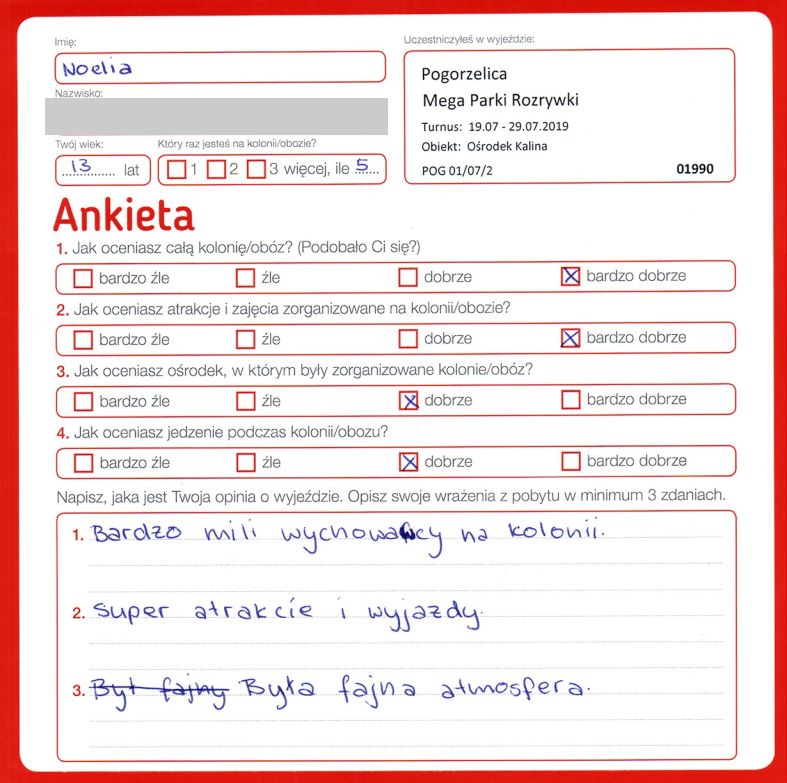 Imię:
Uczestniczyłeś w wyjeździe:
Noelia
Pogorzelica
Mega Parki Rozrywki
Nazwisko:
Turnus: 19.07 - 29.07.2019
Obiekt: Ośrodek Kalina
Twój wiek:
Który raz jesteś na kolonii/obozie?
13 lat
1 2 3 więcej, ile 5
POG 01/07/2 01990
Ankieta
1. Jak oceniasz całą kolonię/obóz? (Podobało Ci się?)
bardzo źle źle dobrze bardzo dobrze
2. Jak oceniasz atrakcje i zajęcia zorganizowane na kolonii/obozie?
bardzo źle źle dobrze bardzo dobrze
3. Jak oceniasz ośrodek, w którym były zorganizowane kolonie/obóz?
bardzo źle źle dobrze bardzo dobrze
4. Jak oceniasz jedzenie podczas kolonii/obozu?
bardzo źle źle dobrze bardzo dobrze
Napisz, jaka jest Twoja opinia o wyjeździe. Opisz swoje wrażenia z pobytu w minimum 3 zdaniach.
1. Bardzo mili wychowawcy na kolonii.
2. Super atrakcie i wyjazdy.
3. Był fajny Była fajna atmosfera.